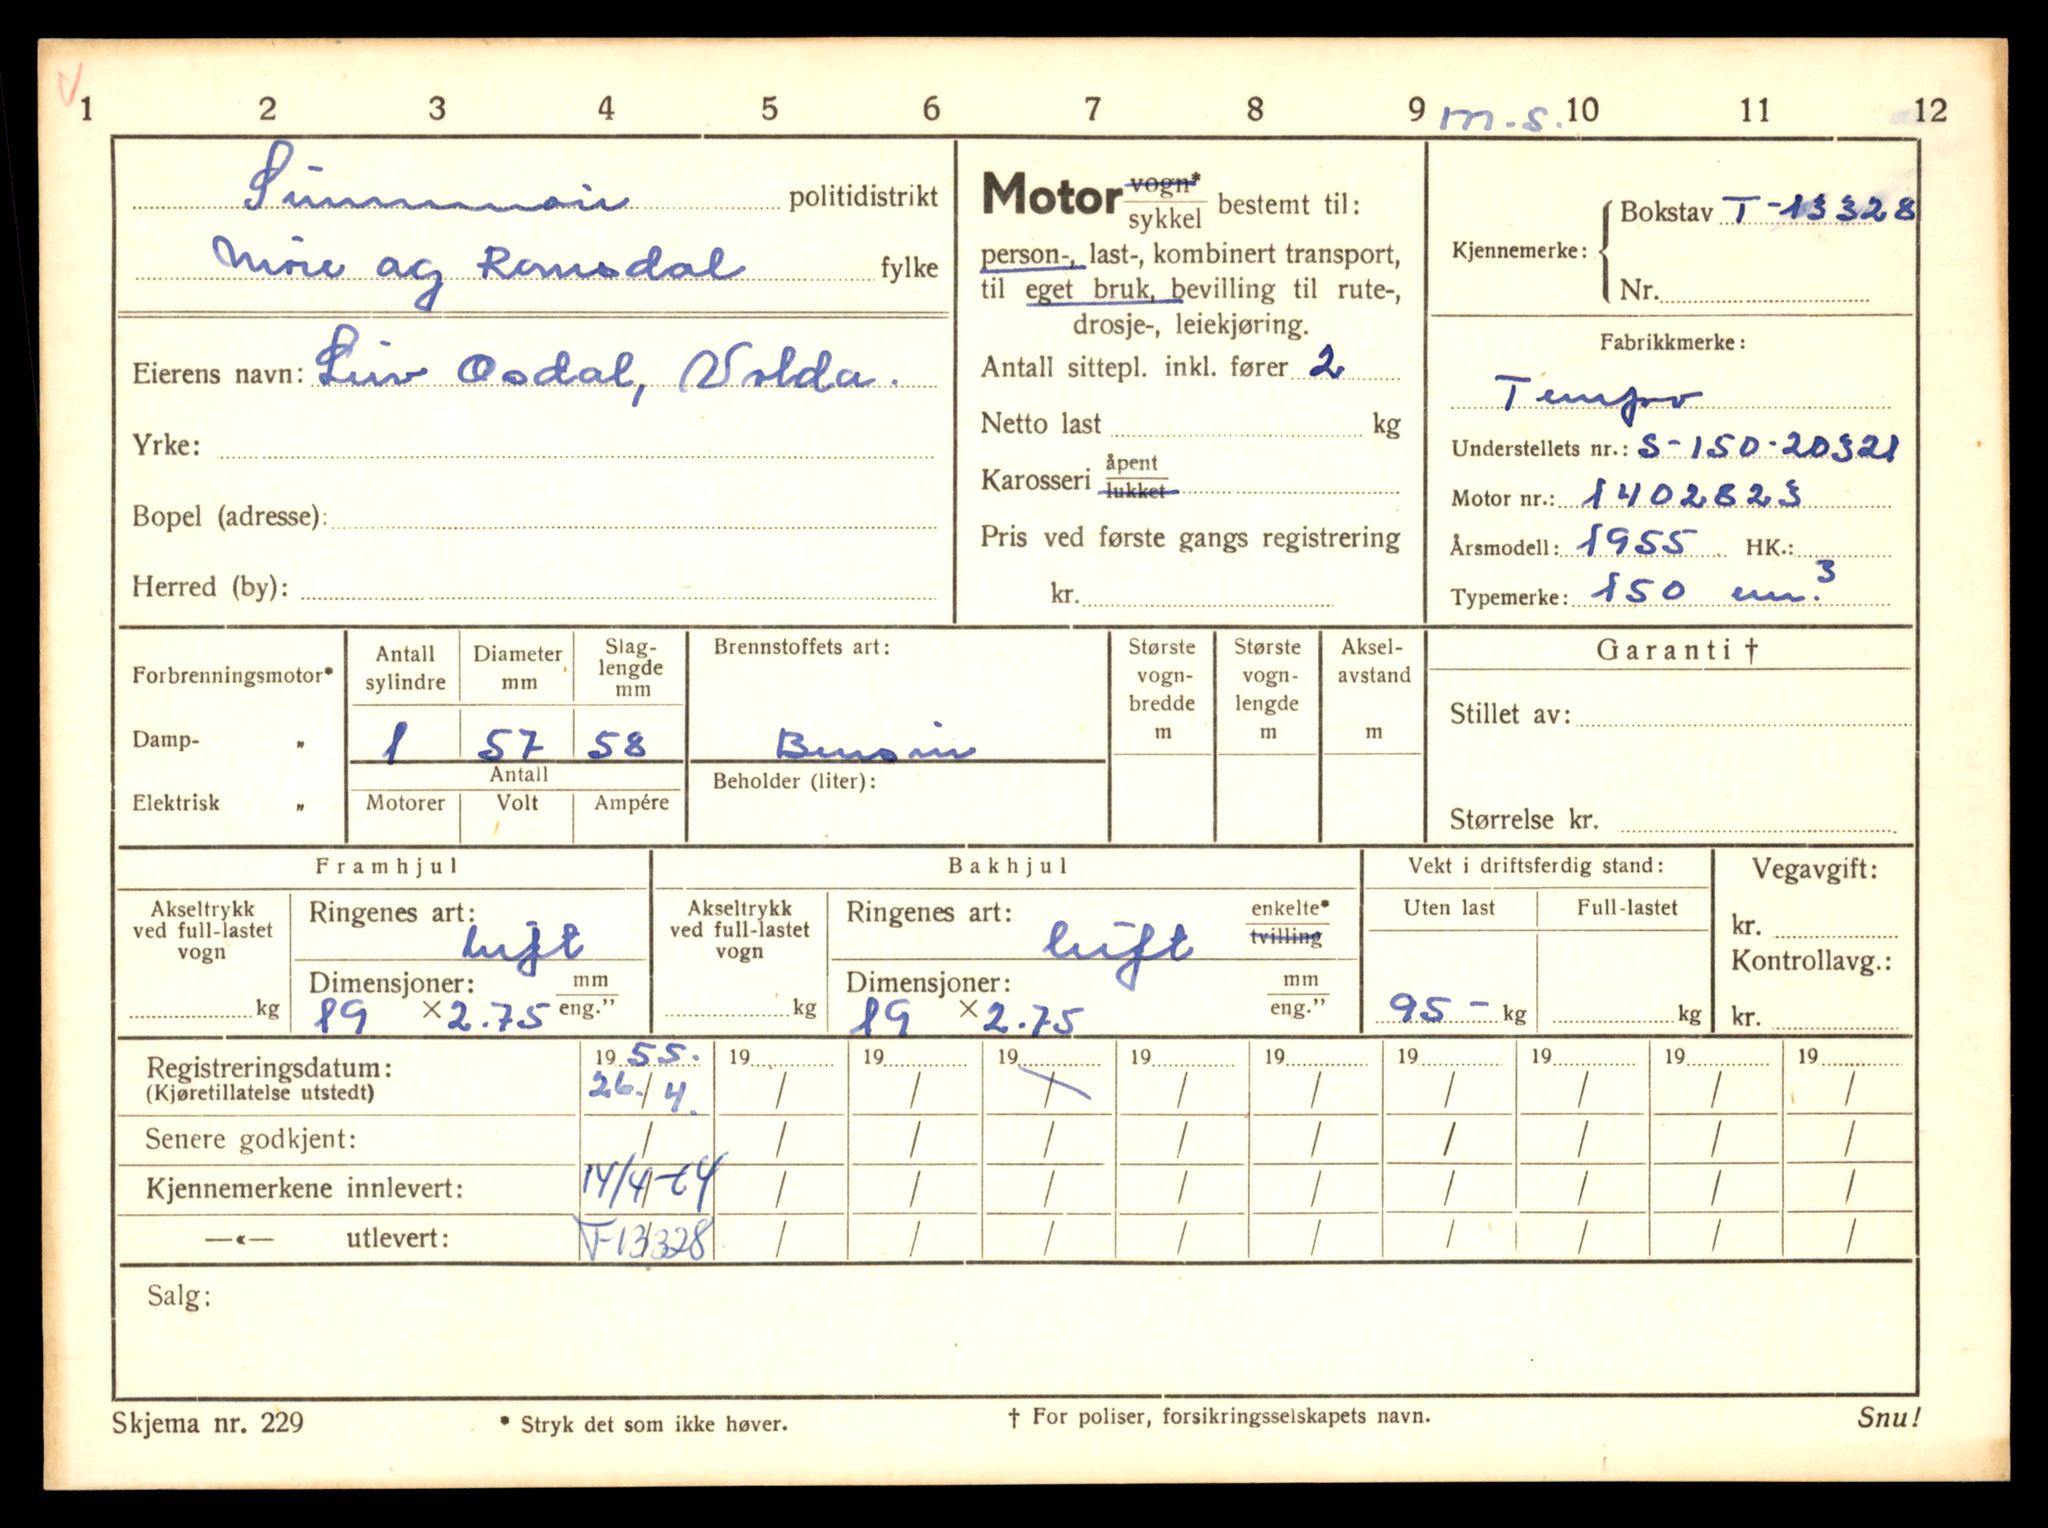 1 2 3 4 5 6 7 8 9 m.s. 10 11 12
Sunnmøre politidistrikt
Møre og Romsdal fylke
Eierens navn: Liv Osdal, Volda.
Yrke:
Bopel (adresse):
Herred (by):
Motor vogn* sykkel bestemt til:
person-, last-, kombinert transport,
til eget bruk, bevilling til rute-,
drosje-, leiekjøring.
Antall sittepl. inkl. fører 2
Netto last kg
Karosseri åpent lukket
Pris ved første gangs registrering
kr.
Kjennemerke: Bokstav T-13328
Nr.
Fabrikkmerke:
Tempo
Understellets nr.: S-150-20321
Motor nr.: 1402823
Årsmodell: 1955 HK.:
Typemerke: 150 cm.3
Forbrenningsmotor*
Damp- „
Elektrisk „
Antall sylindre
1
Diameter mm
57
Slag-
lengde
mm
58
Antall
Motorer Volt Ampére
Brennstoffets art:
Bensin
Beholder (liter):
Største
vogn-
bredde
m
Største
vogn-
lengde
m
Aksel-
avstand
m
Garanti †
Stillet av:
Størrelse kr.
Framhjul
Akseltrykk
ved full-lastet
vogn
kg
Ringenes art:
luft
Dimensjoner: mm
19 × 2.75 eng.”
Bakhjul
Akseltrykk
ved full-lastet
vogn
kg
Ringenes art: enkelte*
luft tvilling
Dimensjoner: mm
19 × 2.75 eng.”
Vekt i driftsferdig stand:
Uten last Full-lastet
95- kg kg
Vegavgift:
kr.
Kontrollavg.:
kr.
Registreringsdatum: 1955. 19 19 19 19 19 19 19 19 19
(Kjøretillatelse utstedt) 26./4. / / / / / / / / /
Senere godkjent: / / / / / / / / / /
Kjennemerkene innlevert: 14/4-64 / / / / / / / / /
—«— utlevert: T-13328 / / / / / / / / /
Salg:
Skjema nr. 229 * Stryk det som ikke høver. † For poliser, forsikringsselskapets navn. Snu!